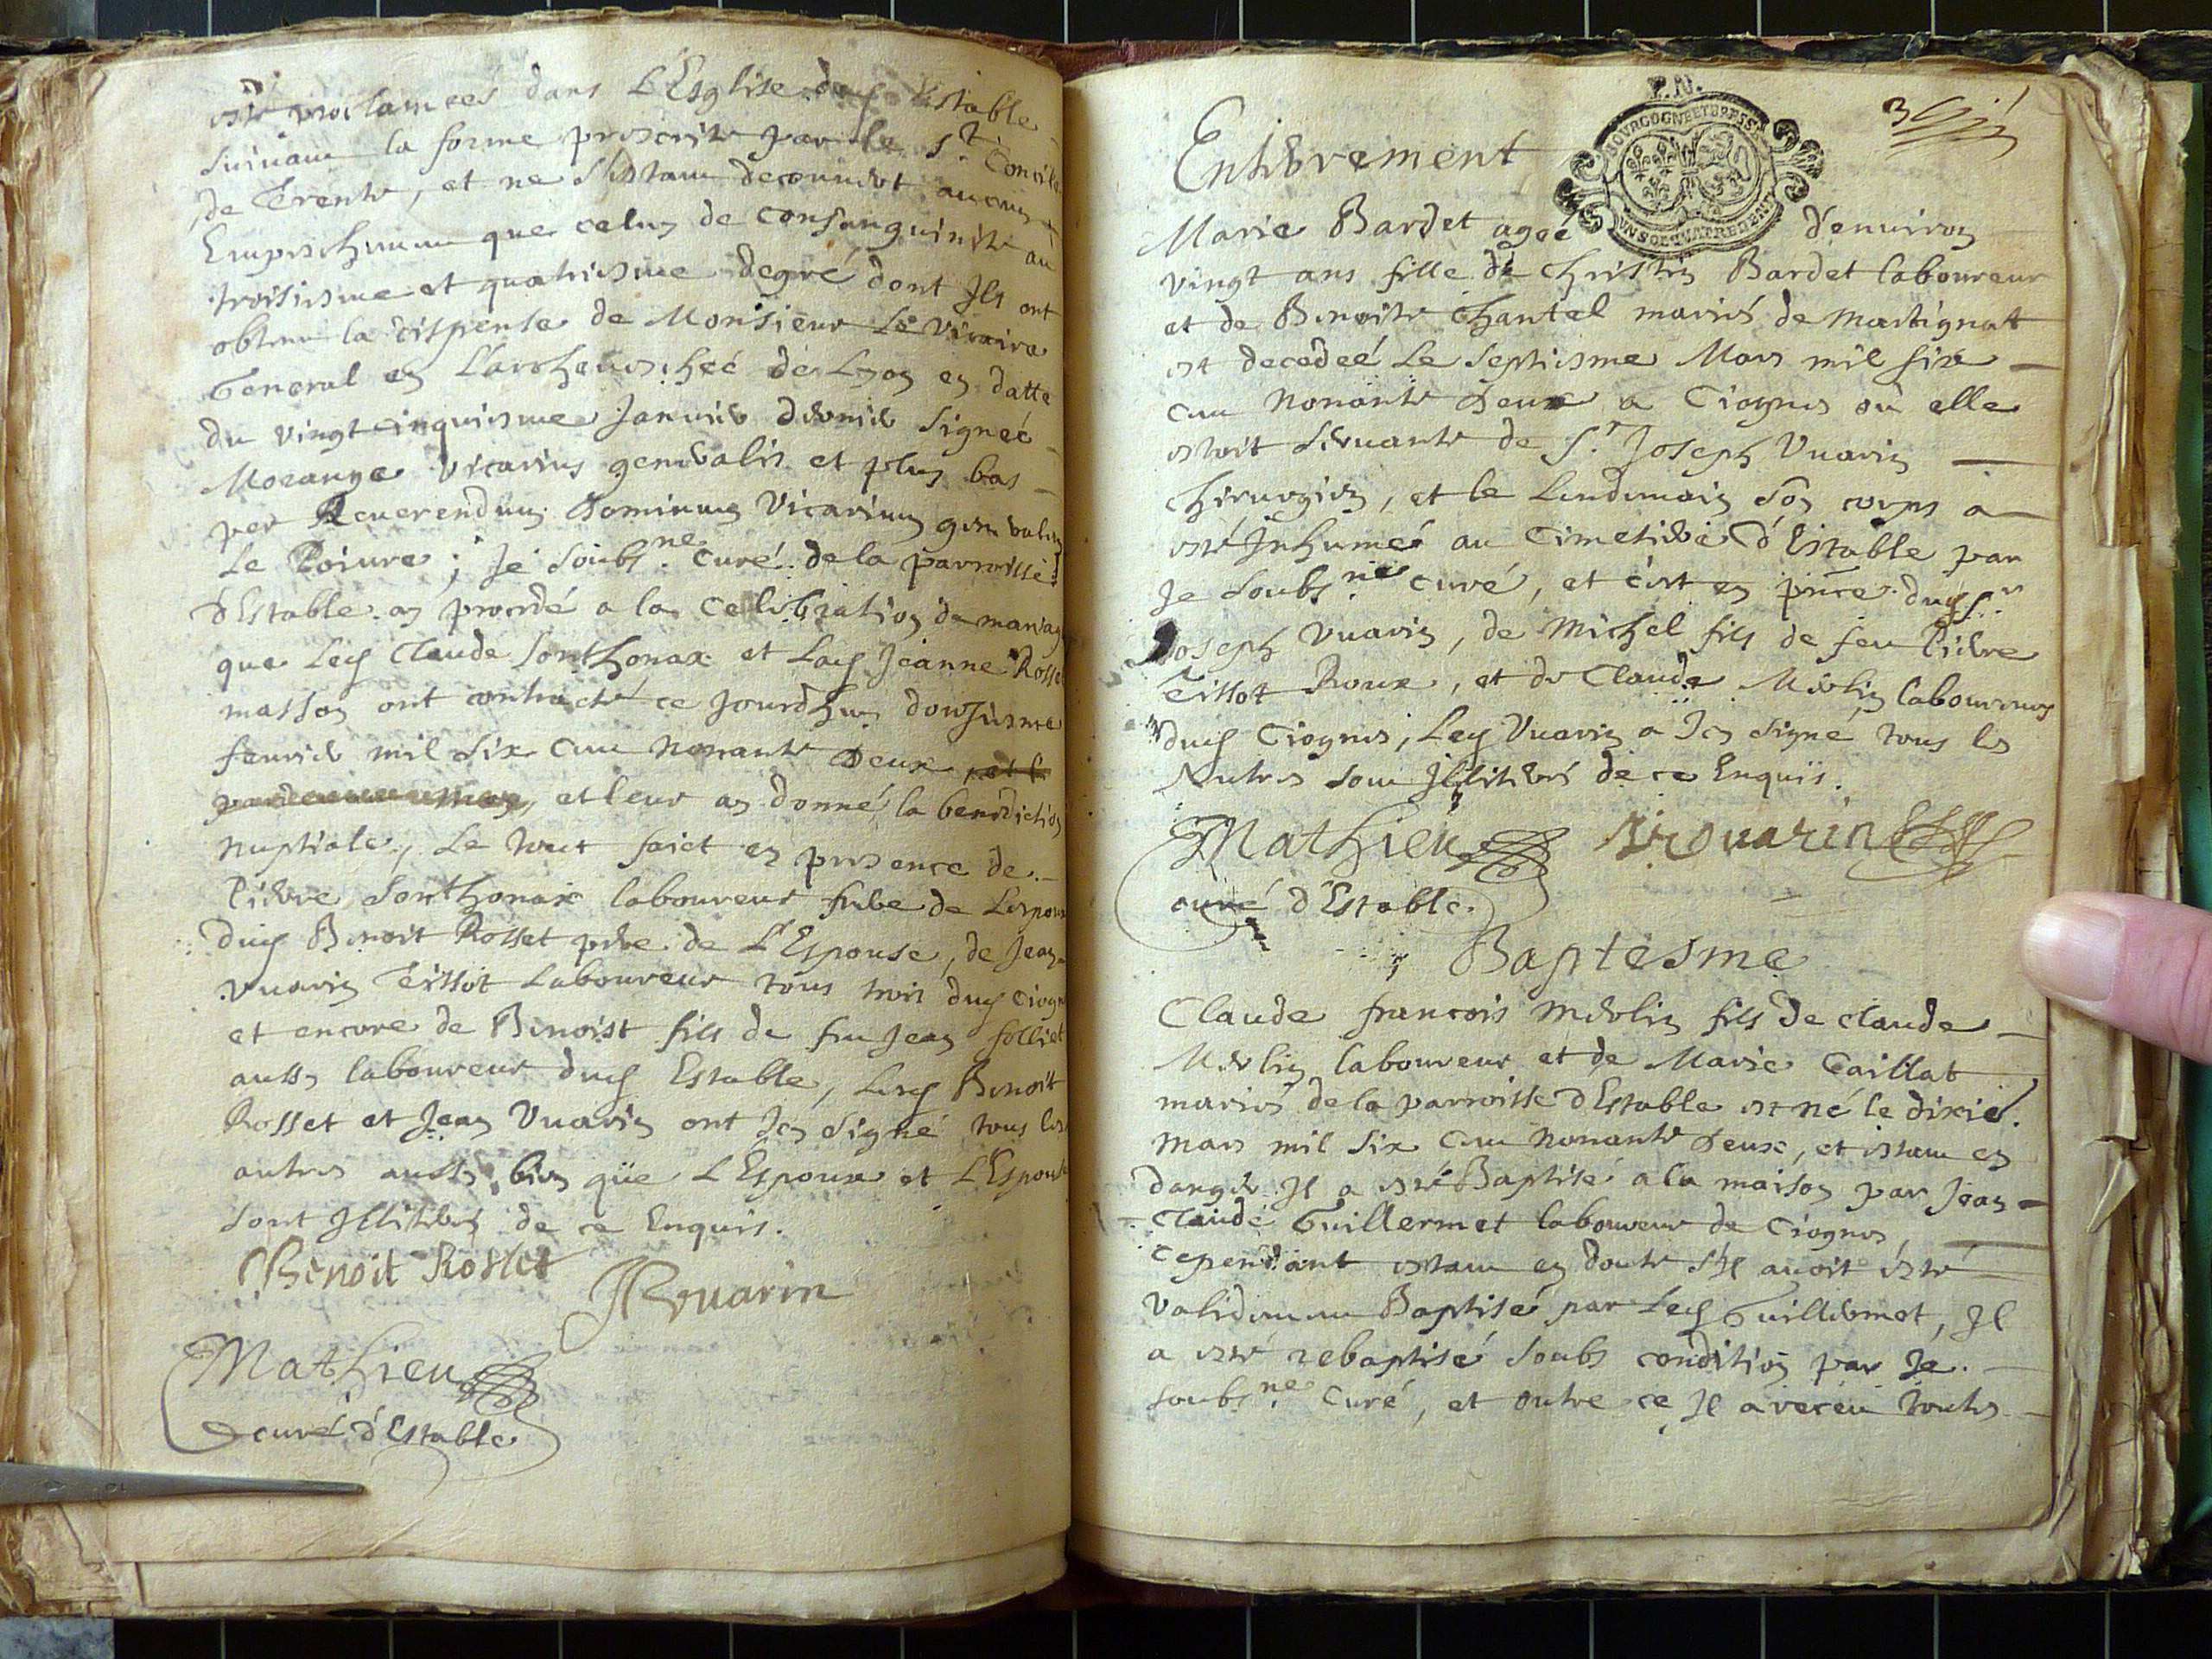 esté proclamées dans L'Esglise dud Estable
suivant la forme prescrite par le St Concile
de Trente, et ne s'estant decouvert aucun
Empeschement que celuy de consanguinité au
troisiesme et quatriesme degré dont Ils ont
obtenu la dispense de Monsieur Le Vicaire
General en L'archevesché de Lyon en datte
du vingtcinquiesme Janvier dernier signeé
Morange vicarius generalis et plus bas
per Reverendum Dominum Vicarium generalem
Le Poivre; Je soubsné. Curé de la parroisse
d'Estable ay procedé a la Celebration de mariage
que Led Claude Sonthonax et Lad Jeanne Rosset
masson ont contracté ce jourdhuy douziesme
fevrier mil six cent nonante Deux
et leur ay donné la benediction
nuptiale, Le tout faict en presence de
Pierre Sonthonax laboureur frere de Lespoux
dud Benoit Rosset pere de L'Espouse, de Jean
Vuarin Tissot Laboureur tous trois dud Ciogn
et encore de Benoist fils de feu Jean folliet
aussy laboureur dud Estable, Lesd Benoit
Rosset et Jean Vuarin ont Icy signé tous les
autres aussy bien que L'Espoux et L'Espouse
sont Illiteres de ce Enquis.
Benoit Rosset
JVuarin
Mathieu
curé d'Estable
P.N.
BOURGOGNE ET BRESSE
UN SOL QUATRE DEN
Enterrement
Marie Bardet ageé d'environ
vingt ans fille de Christin Bardet laboureur
et de Benoite Chantel mariés de Martignat
est decedeé Le Septiesme Mars mil six
cent Nonante Deux a Ciognes où elle
estoit servante de Sr. Joseph Vuarin
Chirurgien, et le Lendemain son corps a
esté Inhumé au Cimetiere d'Estable par
Je soubsné curé, et c'est en pnce dud Sr
Joseph Vuarin, de Michel fils de feu Pierre
Tissot Roux, et de Claude Merlin laboureurs
dud Ciognes, Led Vuarin a Icy signé tous les
Autres sont Illiterés de ce Enquis.
Mathieu
Vuarin
curé d'Estable.
Baptesme
Claude francois Merlin fils de claude
Merlin laboureur et de Marie Caillat
mariés de la parroisse d'Estable est né le dixié.
mars mil six cent nonante Deux, et estant en
danger Il a esté Baptisé a la maison par Jean
Claude Guillermet laboureur de Ciognes,
cependant estant en doute s'Il avoit esté
validement Baptisé par Led Guillermet, Il
a esté rebaptisé soubs condition par Je
soubsné Curé, et outre ce Il a receu toutes